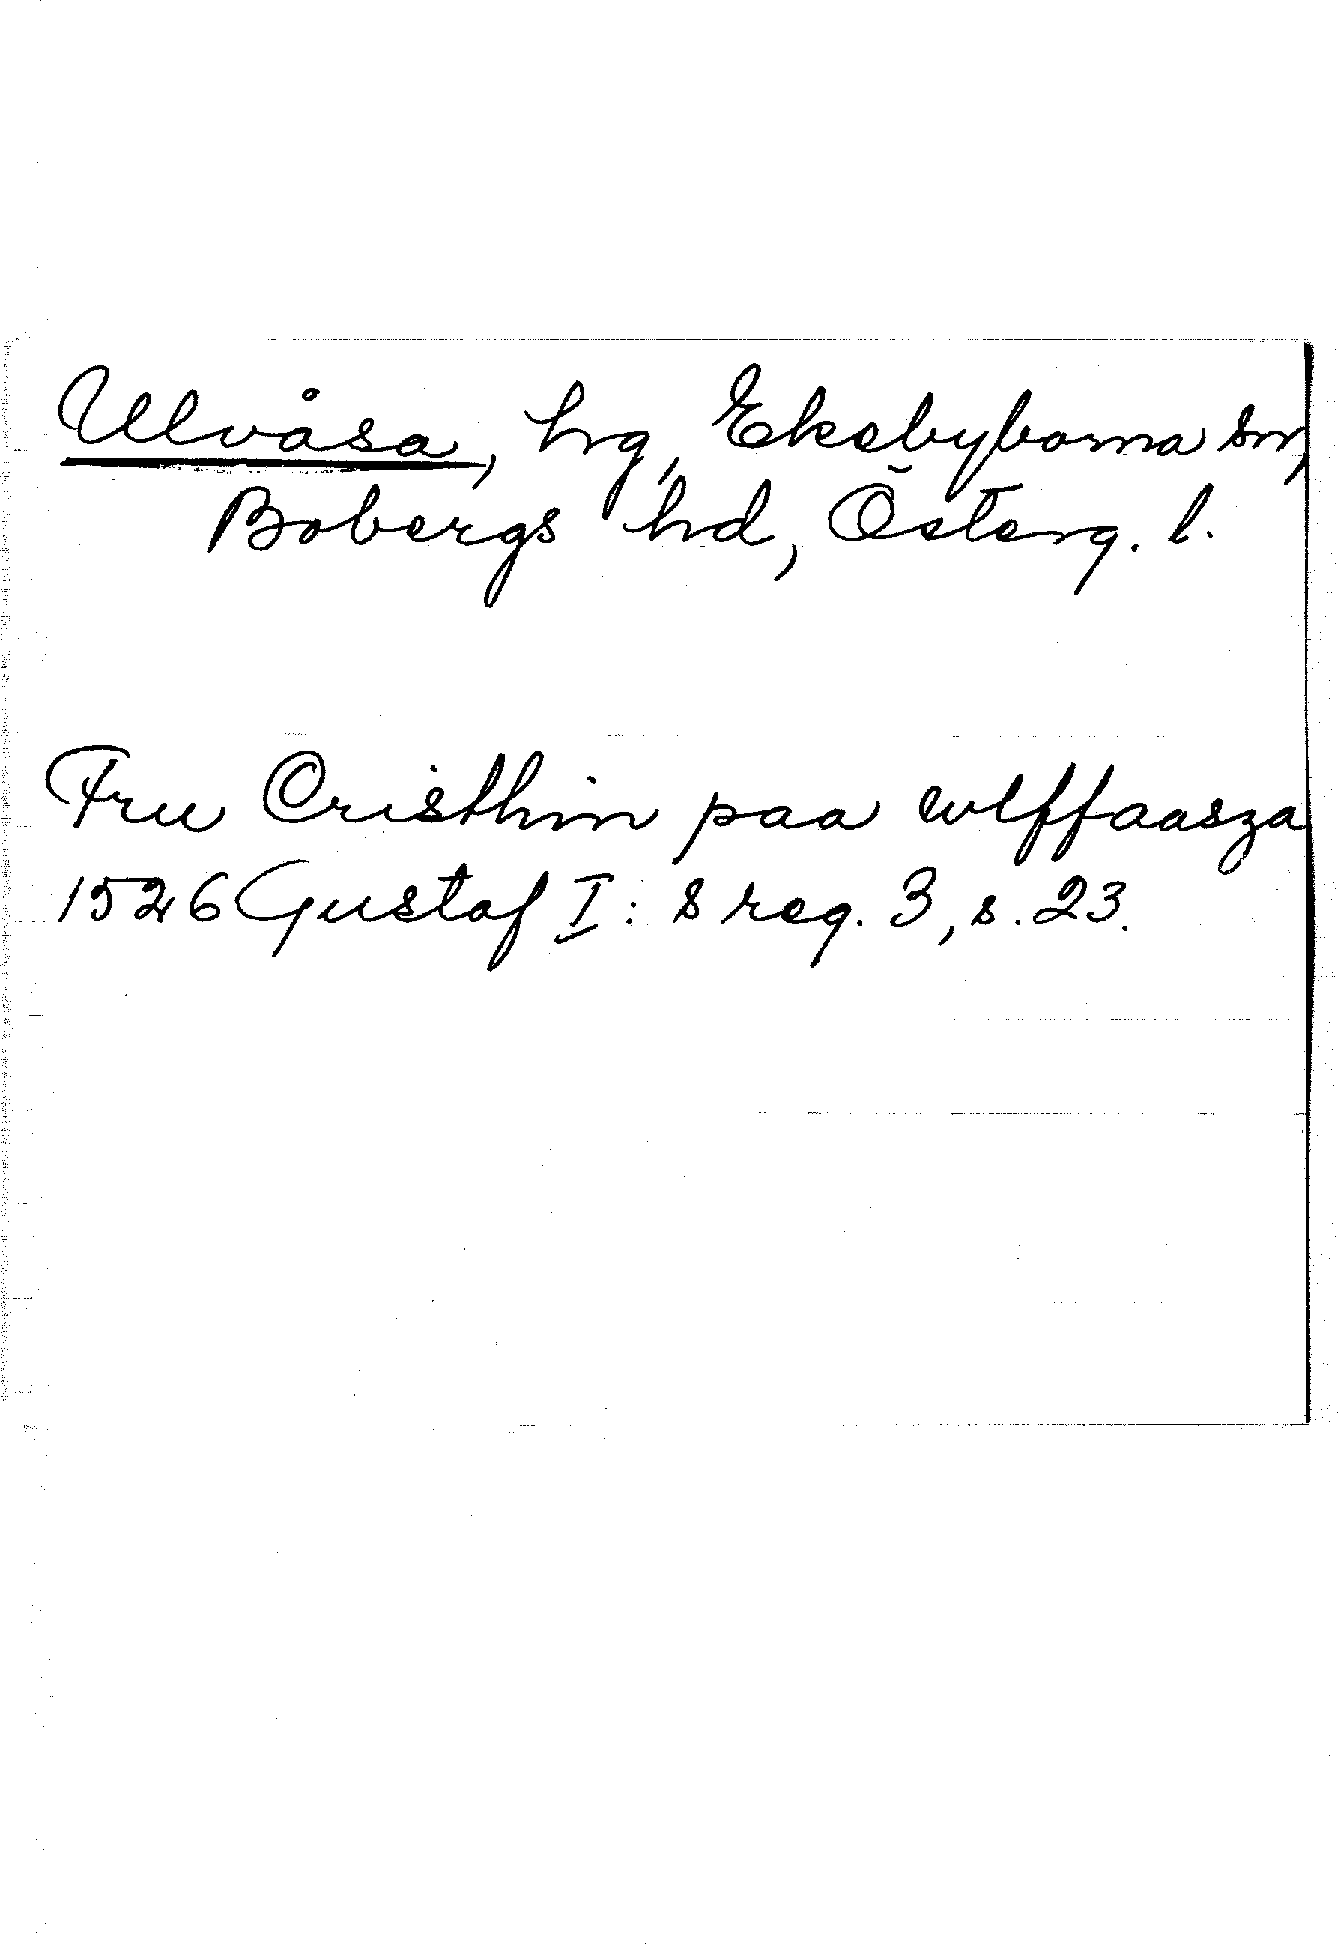 Ulvåsa, hg, Ekebyborna sn,
Bobergs hd, Österg. l.
Fru Cristhin paa wlffaasza
1526 Gustaf I:s reg. 3, s. 23.